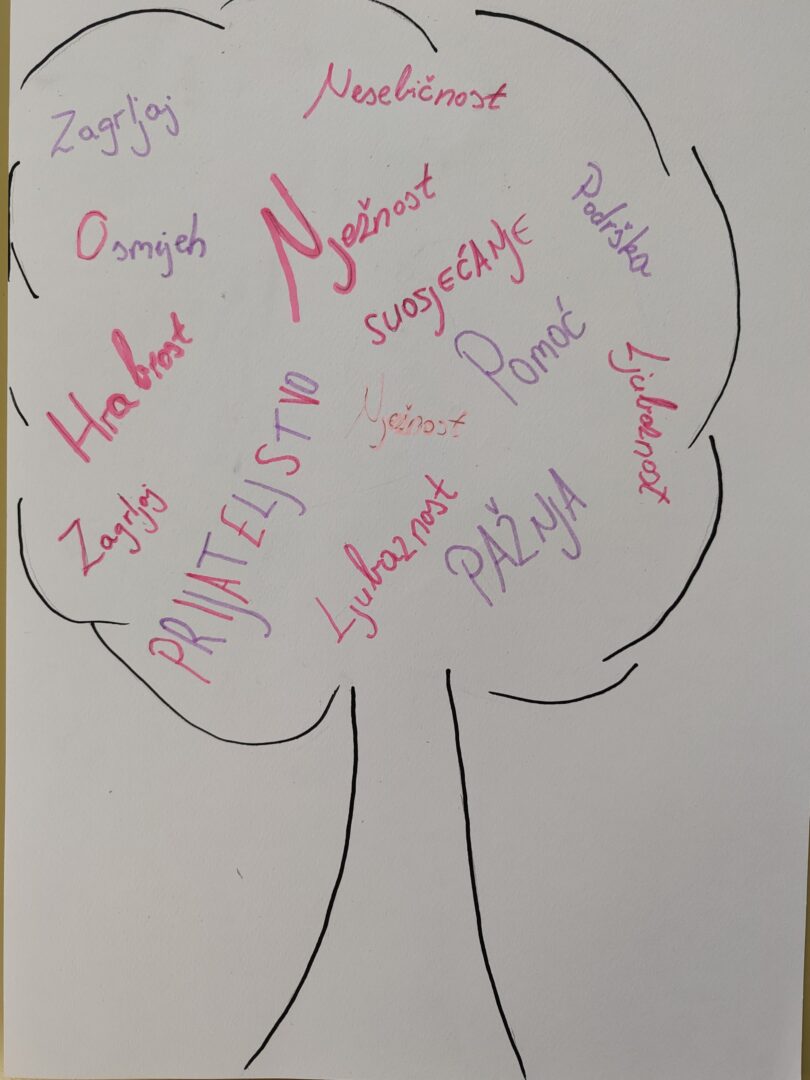 Zagrljaj
Nesebičnost
Osmijeh
Nježnost
SUOSJEĆANJE
Podrška
Hrabrost
Pomoć
Nježnost
Ljubaznost
PRIJATELJSTVO
Zagrljaj
Ljubaznost
PAŽNJA